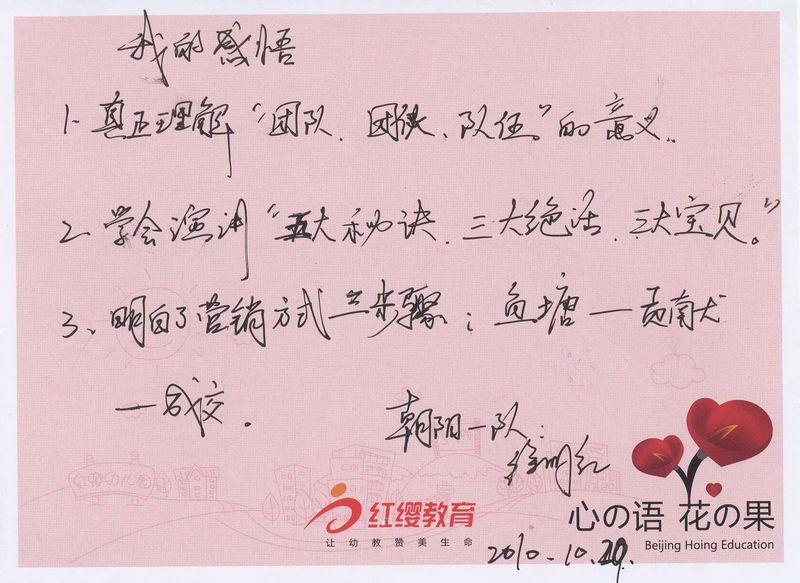 我的感悟
1、真正理解“团队、团伙、队伍。”的意义。
2、学会演讲“五大秘诀、三大绝活、三大宝贝。”
3、明白了营销方式三步骤：鱼塘—贡献
—成交。
朝阳一队：
红缨幼儿园
红缨教育
让幼教赞美生命
心の语 花の果
Beijing Hoing Education
2010.10.29.